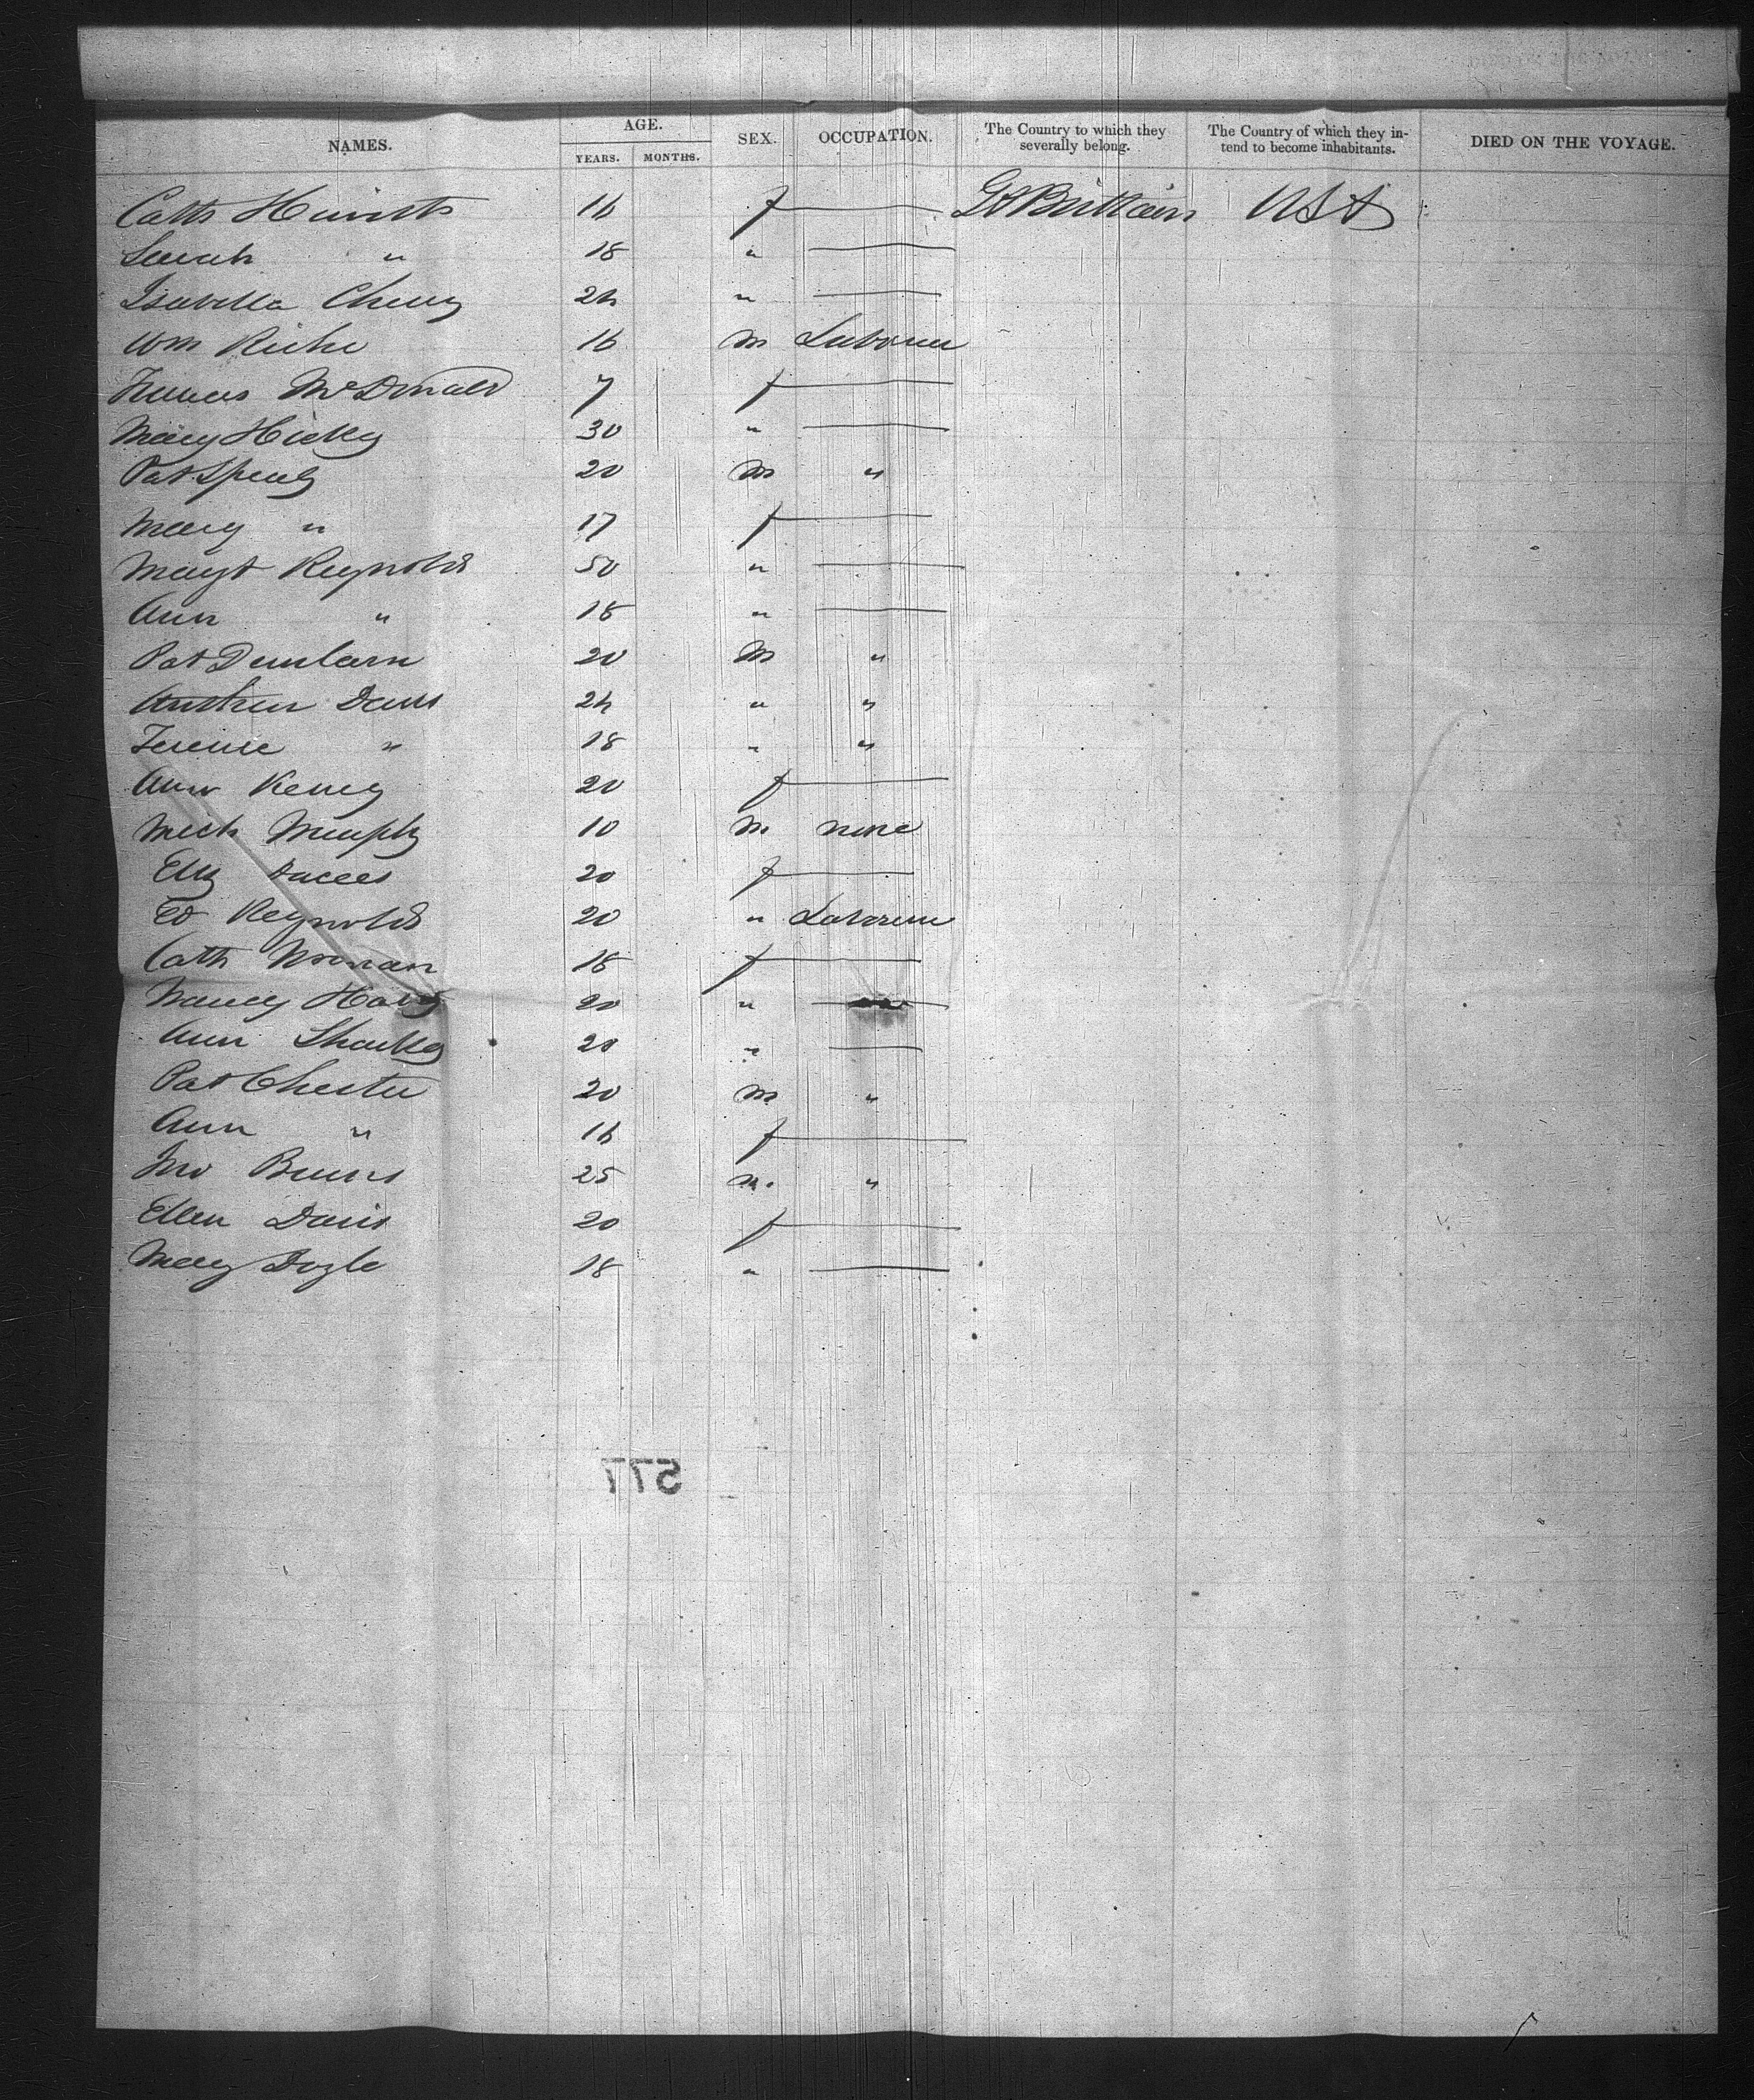 NAMES. AGE. YEARS. MONTHS. SEX. OCCUPATION. The Country to which they severally belong. The Country of which they intend to become inhabitants. DIED ON THE VOYAGE.
Cath 16 f — Gt Brittain USA
Sarah " 18 " —
Isabella 24 " —
Wm 16 m Laborer
Frances McDonald 7 f —
Mary Hicky 30 " —
Pat 20 m "
Mary " 17 f —
Margt Reynolds 50 " —
Ann " 18 " —
Pat 20 m "
Andrew Davis 24 " "
Terence " 18 " "
Ann 20 f —
Mich Murphy 10 m none
20 f —
Ed Reynolds 20 " Laborer
Cath 18 f —
Nancy 20 " —
Ann Sharkey 20 " —
Pat Chester 20 m "
Ann " 16 f —
Jno Burns 25 m. "
Ellen Davis 20 f —
Mary Doyle 18 " —
577